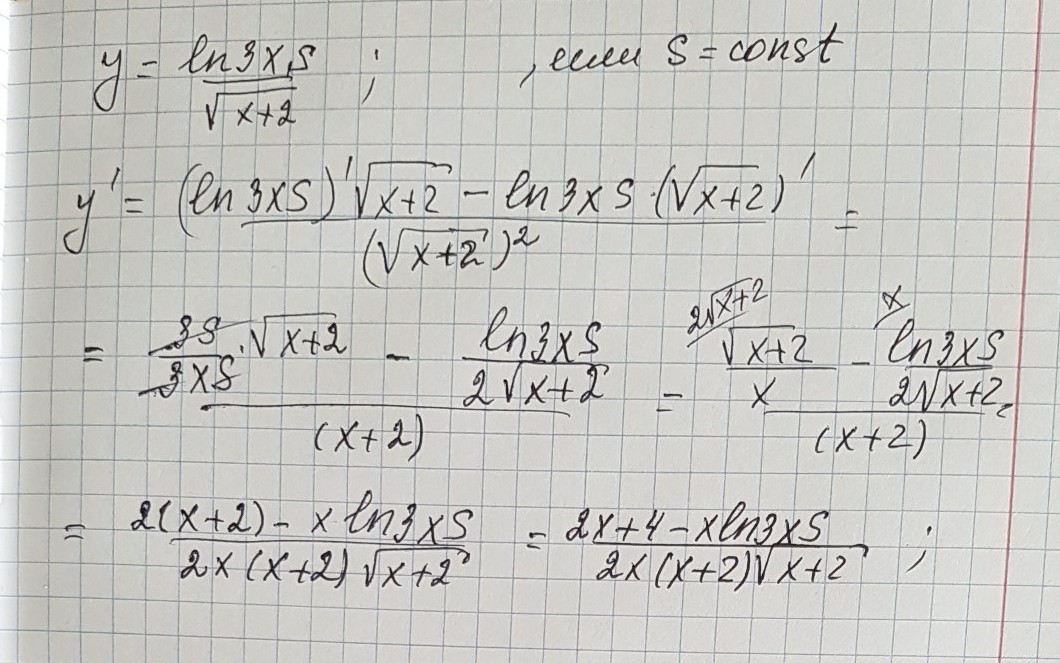 y = ln3xs / √(x+2) ; , если s = const
y' = ((ln3xs)'√(x+2) − ln3xs·(√(x+2))') / (√(x+2))² =
= (3s/3xs · √(x+2) − ln3xs / 2√(x+2)) / (x+2) = (√(x+2) / x (2√(x+2) − ln3xs / 2√(x+2) (x) / (x+2) =
= (2(x+2) − x·ln3xs) / (2x(x+2)√(x+2)) = (2x+4−xln3xs) / (2x(x+2)√(x+2)) ;